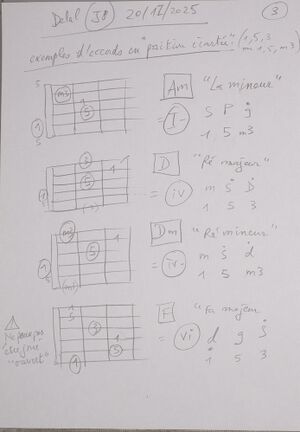 Delal J8 20/12/2025 3
exemples d'accords en "position écartée": (1, 5, 3
m 1, 5, m3)
5 m3
5
1
5
Am "La mineur"
= I- S P g
1 5 m3
3
5 1
1
6
D "Ré majeur"
= iv m s
1 5 3
m3
5 1
1
6
Dm "Ré mineur"
= iv- m s d
1 5 m3
1
5
3
5
1
Ne peut pas
être joué
"ouvert"
F "Fa majeur
= vi d g s
1 5 3